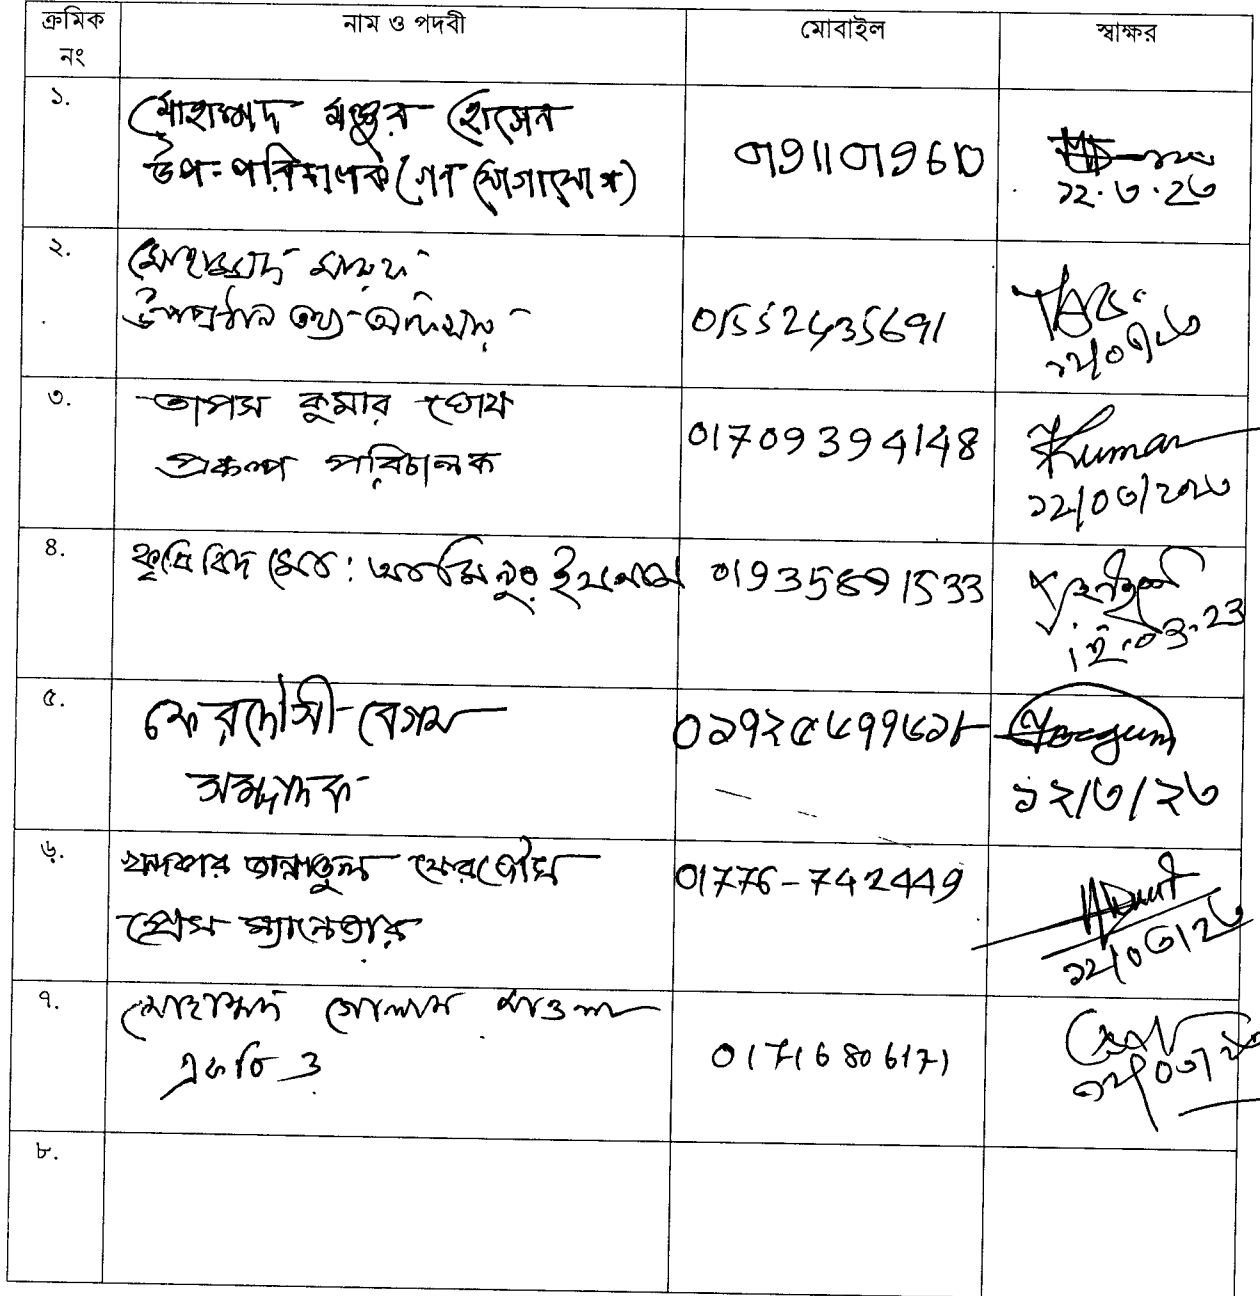 ক্রমিক নং নাম ও পদবী মোবাইল স্বাক্ষর
১.
মোহাম্মদ মঞ্জুর হোসেন
উপ-পরিচালক (গণ যোগাযোগ)
01911019610
১২.৩.২৩
২.
মোহাম্মদ
উপপ্রধান তথ্য অফিসার
01552435691
১২/০৩/২৩
৩.
তাপস কুমার ঘোষ
প্রকল্প পরিচালক
01709394148
Kumar
১২/০৩/২০২৩
৪.
কৃষিবিদ মোঃ আমিনুর ইসলাম
01935691533
12.03.23
৫.
ফেরদৌসী বেগম
সম্পাদক
০১৭২৫৬৭৭৬১৮
Begum
১২/৩/২৩
৬.
খন্দকার জান্নাতুল ফেরদৌস
প্রেস ম্যানেজার
01776-742449
১২/০৩/২৩
৭.
মোহাম্মদ গোলাম মাওলা
01716806171
১২/০৩/২৩
৮.